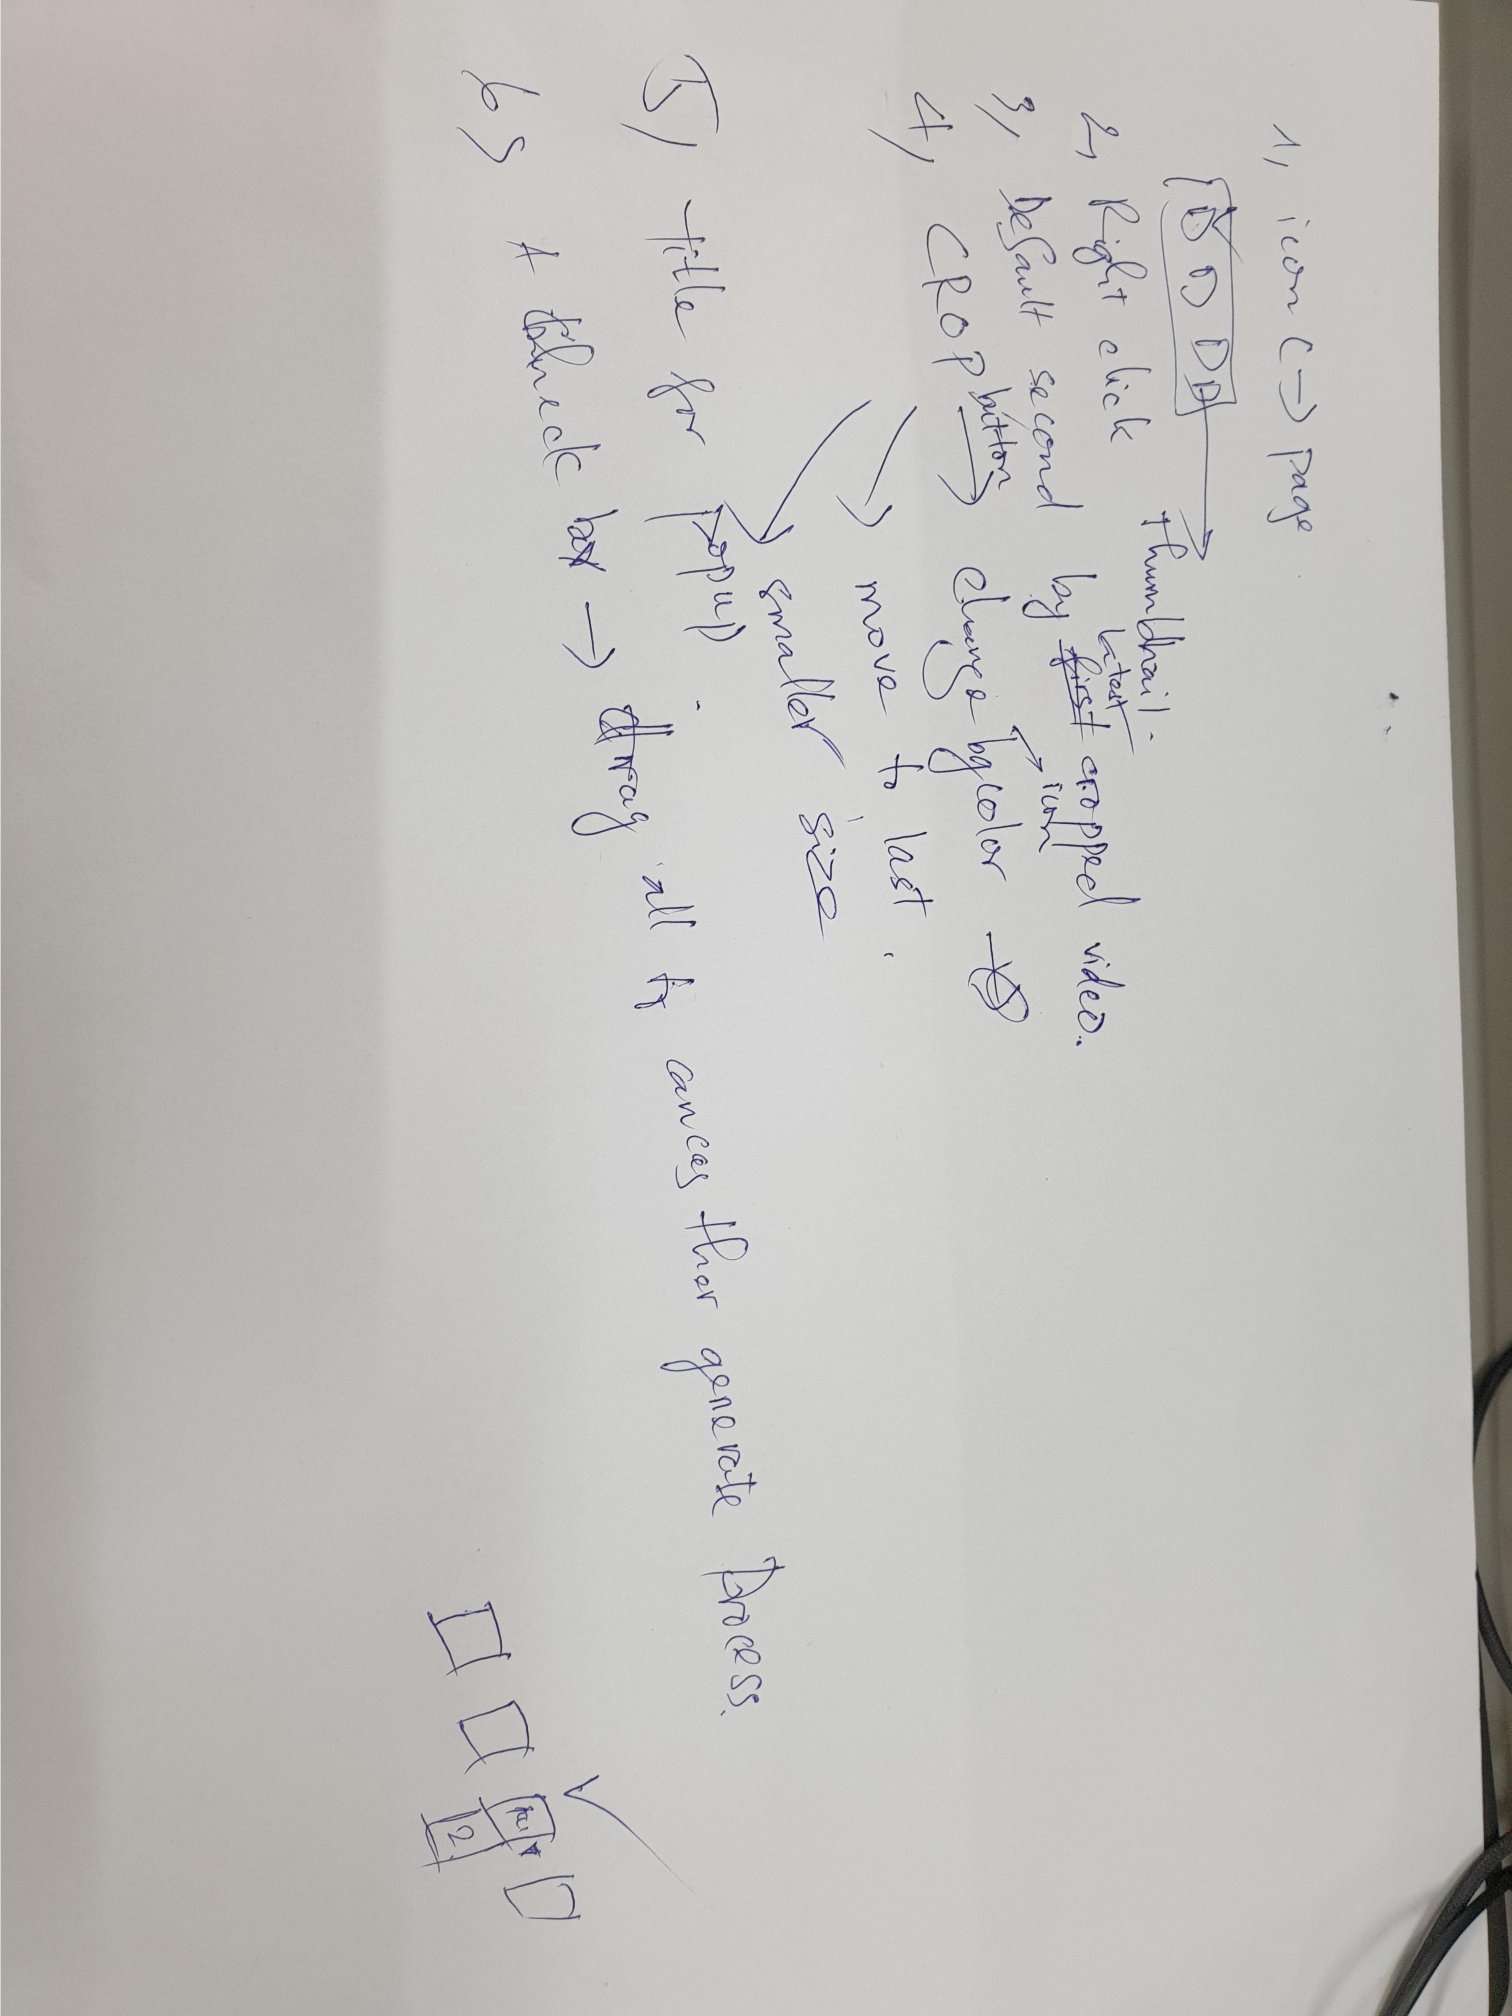 1, icon (→) page
D D D D →
Thumbhail.
2, Right click
latest
3, Default second by first cropped video.
icon
4, CROP button → change bg color →
move to last.
smaller size
5) title for popup.
6) A check box → drag all to cances ther generate Process.
2